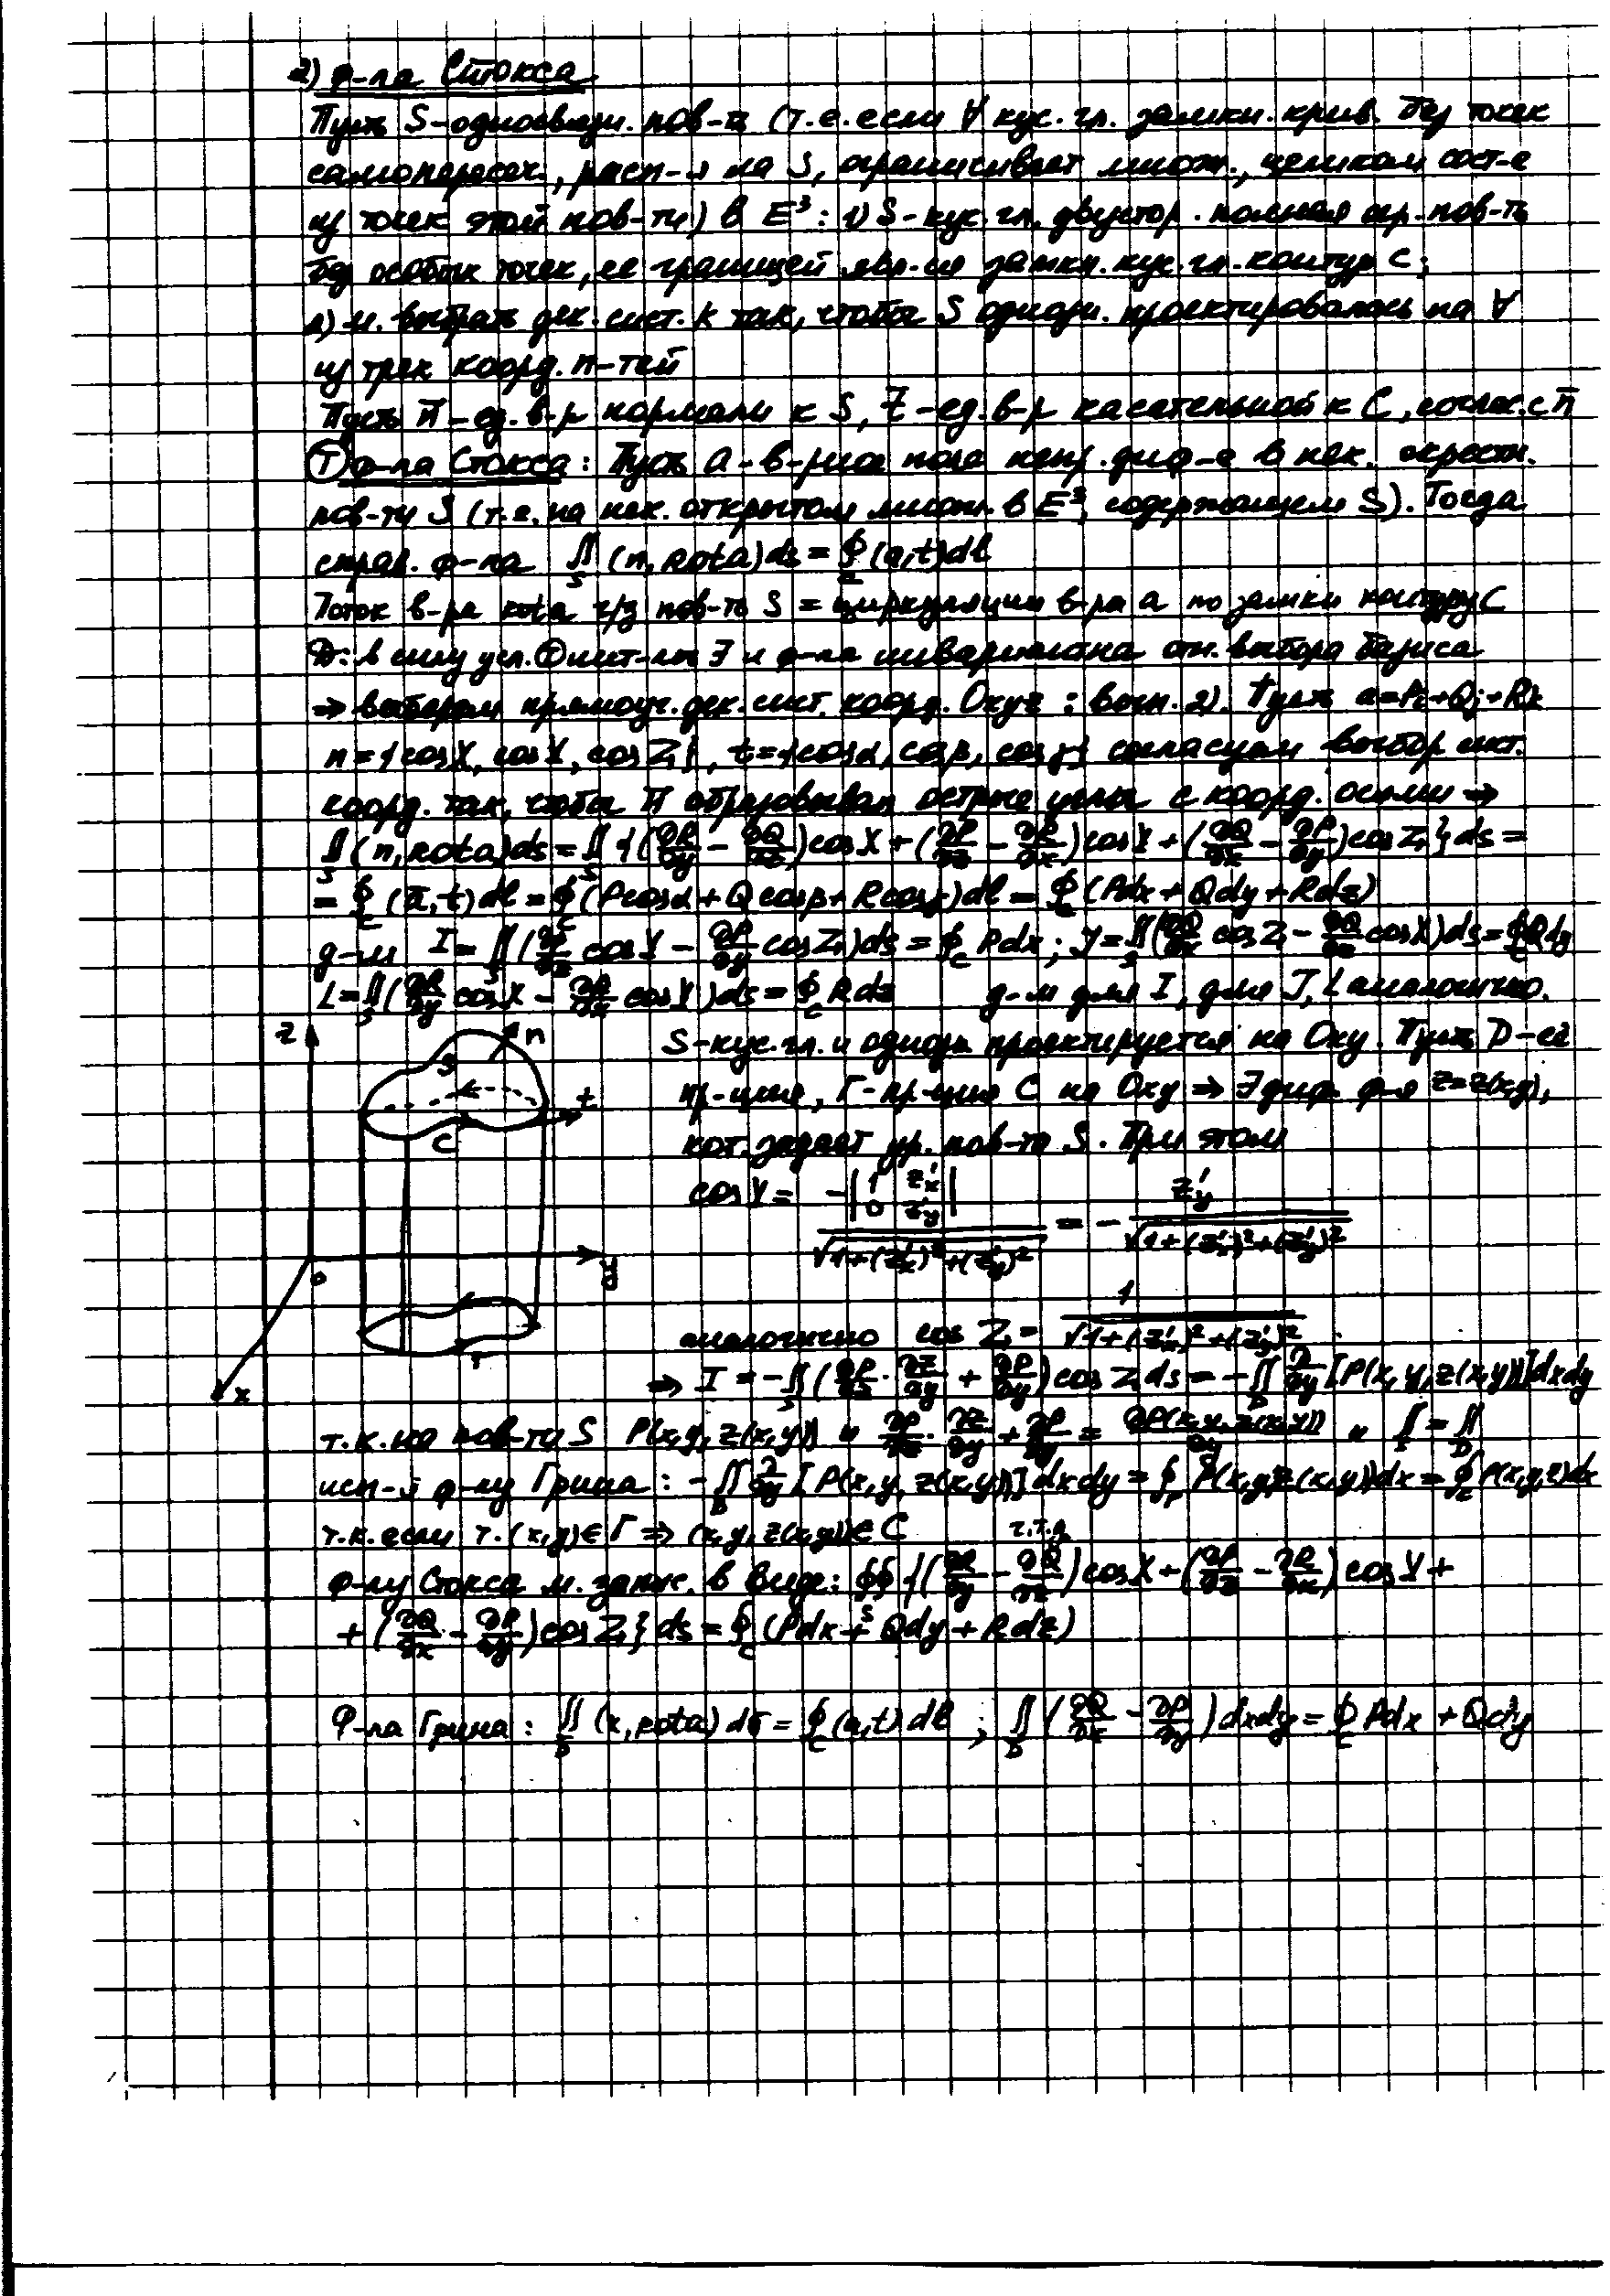 2) ф-ла Стокса
Пусть S-односвязн. пов-ть (т.е. если ∀ кус. гл. замкн. крив. без точек
самопересеч., расп-я на S, ограничивает множ., целиком сост-е
из точек этой пов-ти) в E³: 1) S-кус. гл. двустор. полная огр. пов-ть
без особых точек, ее границей явл-ся замкн. кус. гл. контур C;
2) м. выбрать дек. сист. к так, чтобы S однозн. проектировалась на ∀
из трех коорд. п-тей
Пусть n̄ - ед. в-р нормали к S, t̄ - ед. в-р касательной к C, соглас. с n̄
Ⓣ ф-ла Стокса: Пусть a - в-рное поле непр. диф-е в нек. окрестн.
пов-ти S (т.е. на нек. открытом множ. в E³, содержащем S). Тогда
справ. ф-ла ∬_S (n, rota)ds = ∮_C (a,t)dl
Поток в-ра rota ч/з пов-ть S = циркуляции в-ра a по замкн контуру C
D: в силу усл. Ⓣ инт-лы ∃ и ф-ла инвариантна отн. выбора базиса
⇒ выберем прямоуг. дек. сист. коорд. Oxyz : вып. 2). Пусть a=Pi+Qj+Rk
n={cosX, cosY, cosZ}, t={cosα, cosβ, cosγ} согласуем выбор сист.
коорд. так, чтобы n̄ образовывал острые углы с коорд. осями ⇒
∬_S (n, rota)ds = ∬_S {(∂R/∂y − ∂Q/∂z)cosX + (∂P/∂z − ∂R/∂x)cosY + (∂Q/∂x − ∂P/∂y)cosZ} ds =
= ∮_C (ā,t)dl = ∮_C (Pcosα + Qcosβ + Rcosγ)dl = ∮_C (Pdx + Qdy + Rdz)
д-м I = ∬_S (∂P/∂z cosY − ∂P/∂y cosZ)ds = ∮_C Pdx; J = ∬_S (∂Q/∂x cosZ − ∂Q/∂z cosX)ds = ∮_C Qdy
L = ∬_S (∂R/∂y cosX − ∂R/∂x cosY)ds = ∮_C Rdz д-м для I, для J, L аналогично.
z n S t C O y Γ x
S-кус. гл. и однозн проектируется на Oxy. Пусть D-её
пр-ция, Γ-пр-ция C на Oxy ⇒ ∃ диф. ф-я z=z(x,y),
кот. задает ур. пов-ти S. При этом
cosY = −|1 z'x; 0 z'y| / √(1+(z'x)²+(z'y)²) = − z'y / √(1+(z'x)²+(z'y)²)
аналогично cosZ = 1 / √(1+(z'x)²+(z'y)²)
⇒ I = −∬_S (∂P/∂z · ∂z/∂y + ∂P/∂y) cosZ ds = −∬_D ∂/∂y [P(x,y,z(x,y))]dxdy
т.к. на пов-ти S P(x,y,z(x,y)) и ∂P/∂z · ∂z/∂y + ∂P/∂y = ∂P(x,y,z(x,y))/∂y и ∬_S = ∬_D
исп-я ф-лу Грина: −∬_D ∂/∂y [P(x,y,z(x,y))]dxdy = ∮_Γ P(x,y,z(x,y))dx = ∮_C P(x,y,z)dx
т.к. если т. (x,y)∈Γ ⇒ (x,y,z(x,y))∈C ч.т.д.
Ф-лу Стокса м. запис. в виде: ∯_S {(∂R/∂y − ∂Q/∂z)cosX + (∂P/∂z − ∂R/∂x)cosY +
+ (∂Q/∂x − ∂P/∂y)cosZ} ds = ∮_C (Pdx + Qdy + Rdz)
Ф-ла Грина: ∬_D (k, rota)dσ = ∮_C (a,t)dl ; ∬_D (∂Q/∂x − ∂P/∂y)dxdy = ∮_C Pdx + Qdy